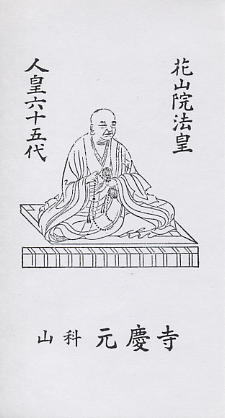 花山院法皇
人皇六十五代
山科 元慶寺